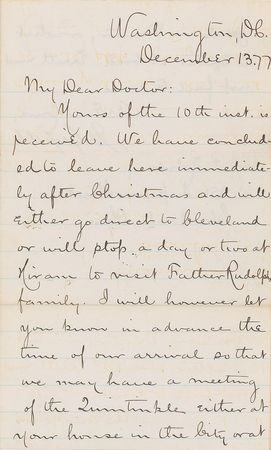 Washington, D.C.
December 13.77
My Dear Doctor:
Yours of the 10th inst. is
received. We have conclud-
ed to leave here immediate-
ly after Christmas and will
either go direct to Cleveland
or will stop a day or two at
Hiram to visit Father Rudolphs
family. I will however let
you know in advance the
time of our arrival so that
we may have a meeting
of the Quintinkle either at
your house in the City or at